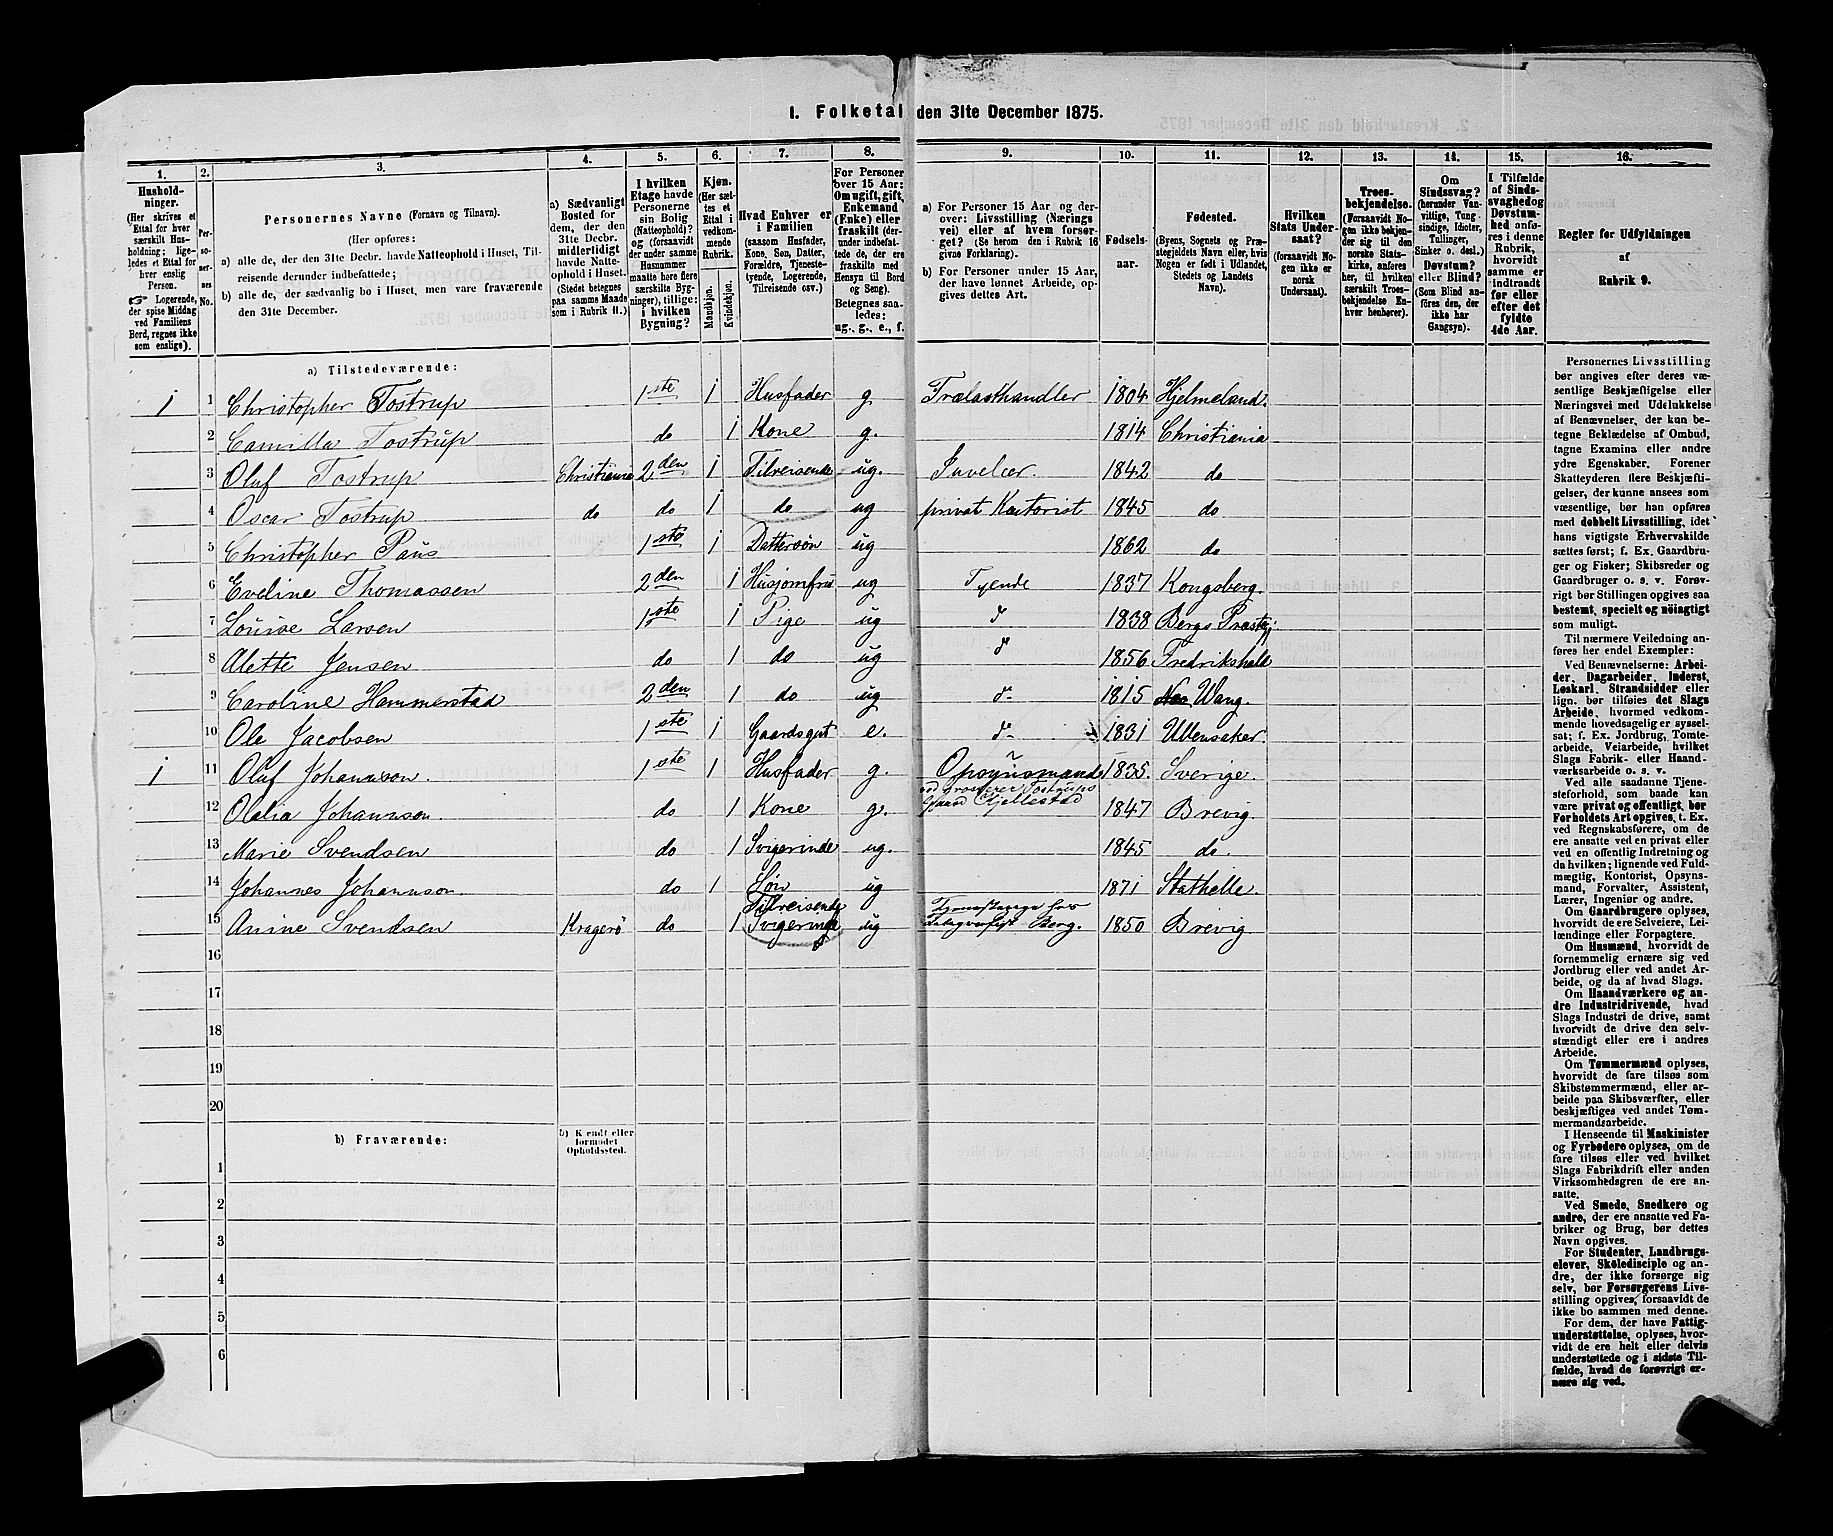 1. Folketal den 31te December 1875.
1. 2. 3. 4. 5. 6. 7. 8. 9. 10. 11. 12. 13. 14. 15. 16.
Hushold-
ninger.
(Her skrives et
Ettal for hver
særskilt Hus-
holdning; lige-
ledes et Ettal for
hver enslig
Person.
☞ Logerende,
der spise Middag
ved Familiens
Bord, regnes ikke
som enslige).
Per-
so-
ner-
nes
No.
Personernes Navne (Fornavn og Tilnavn).
(Her opføres:
a) alle de, der den 31te Decbr. havde Natteophold i Huset, Til-
reisende derunder indbefattede;
b) alle de, der sædvanlig bo i Huset, men vare fraværende
den 31te December.
a) Sædvanligt
Bosted for
dem, der den
31te Decbr.
midlertidigt
havde Natte-
ophold i Huset.
(Stedet betegnes
paa samme Maade
som i Rubrik 11.)
I hvilken
Etage havde
Personerne
sin Bolig
(Natteophold)?
og (forsaavidt
der under samme
Husnummer
maatte høre flere
særskilte Byg-
ninger), tillige:
i hvilken
Bygning?
Kjøn.
(Her sæt-
tes et
Ettal i
vedkom-
mende
Rubrik.
Mandkjøn.
Kvindekjøn.
Hvad Enhver er
i Familien
(saasom Husfader,
Kone, Søn, Datter,
Forældre, Tjeneste-
tyende, Logerende,
Tilreisende osv.)
For Personer
over 15 Aar:
Om ugift, gift,
Enkemand
(Enke) eller
fraskilt (der-
under indbefat-
tede de, der ere
fraskilte med
Hensyn til Bord
og Seng).
Betegnes saa-
ledes:
ug., g., e., f.
a) For Personer 15 Aar og der-
over: Livsstilling (Nærings
vei) eller af hvem forsør-
get? (Se herom den i Rubrik 16
givne Forklaring).
b) For Personer under 15 Aar,
der have lønnet Arbeide, op-
gives dettes Art.
Fødsels-
aar.
Fødested.
(Byens, Sognets og Præ-
stegjeldets Navn eller, hvis
Nogen er født i Udlandet,
Stedets og Landets
Navn).
Hvilken
Stats Under-
saat?
(forsaavidt No-
gen ikke er
norsk
Undersaat).
Troes-
bekjendelse.
(Forsaavidt No-
gen ikke bekjen-
der sig til den
norske Stats-
kirke, anføres
her, til hvilken
særskilt Troes-
bekjendelse En-
hver henhører).
Om
Sindssvag?
(herunder Van-
vittige, Tung-
sindige, Idioter,
Tullinger,
Sinker o. desl.)
Døvstum?
eller Blind?
(Som Blind an-
føres den, der
ikke har
Gangsyn).
I Tilfælde
af Sinds-
svaghed og
Døvstum-
hed anfø-
res i denne
Rubrik,
hvorvidt
samme er
indtraadt
før eller
efter det
fyldte
4de Aar.
Regler for Udfyldningen
af
Rubrik 9.
a) Tilstedeværende:
1 1 Christopher Tostrup 1ste 1 Husfader g. Trælasthandler 1804 Hjelmeland.
2 Camilla Tostrup do 1 Kone g. 1814 Christiania
3 Oluf Tostrup Christiania 2den 1 Tilreisende ug. Juveleer. 1842 do
4 Oscar Tostrup do do 1 do ug privat Kontorist 1845 do
5 Christopher Paus 1ste 1 Dattersøn ug 1862 do
6 Eveline Thomassen 2den 1 Husjomfru ug Tyende 1837 Kongsberg.
7 Louise Larsen 1ste 1 Pige ug d 1838 Bergs Præstgj.
8 Alette Jensen do 1 do ug d 1856 Fredrikshald
9 Caroline Hammerstad 2den 1 do ug d- 1815 Wang.
10 Ole Jacobsen 1ste 1 Gaardsgut e. d- 1831 Ullensaker.
1 11 Oluf Johannson. 1ste 1 Husfader g. Opsynsmand 1835. Sverige.
ved Grosserer Tostrups
Gaard Kjellestad
12 Olalia Johannson. do 1 Kone g. 1847 Brevig.
13 Marie Svendsen do 1 Svigerinde ug. 1845 do.
14 Johannes Johannson. do 1 Søn ug 1871 Stathelle.
15 Anine Svendsen Kragerø do 1 Tilreisende Svigerinde ug Tjenestepige hos
Telegrafist Berg. 1850 Brevig.
16
17
18
19
20
b) Fraværende:
b) Kjendt eller
formodet
Opholdssted.
1
2
3
4
5
6
Personernes Livsstilling
bør angives efter deres væ-
sentlige Beskjæftigelse eller
Næringsvei med Udelukkelse
af Benævnelser, der kun be-
tegne Beklædelse af Ombud,
tagne Examina eller andre
ydre Egenskaber. Forener
Skatteyderen flere Beskjæfti-
gelser, der kunne ansees som
væsentlige, bør han opføres
med dobbelt Livsstilling, idet
hans vigtigste Erhvervskilde
sættes først; f. Ex. Gaardbru-
ger og Fisker; Skibsreder og
Gaardbruger o. s. v. Forøv-
rigt bør Stillingen opgives saa
bestemt, specielt og nøiagtigt
som muligt.
Til nærmere Veiledning an-
føres her endel Exempler:
Ved Benævnelserne: Arbei-
der, Dagarbeider, Inderst,
Løskarl, Strandsidder eller
lign. bør tilføies det Slags
Arbeide, hvormed vedkom-
mende hovedsagelig er syssel-
sat; f. Ex. Jordbrug, Tomte-
arbeide, Veiarbeide, hvilket
Slags Fabrik- eller Haand-
værksarbeide o. s. v.
Ved alle saadanne Tjene-
steforhold, som baade kan
være privat og offentligt, bør
Forholdets Art opgives, t. Ex.
ved Regnskabsførere, om de
ere ansatte ved en privat eller
ved en offentlig Indretning og
da hvilken; lignende ved Fuld-
mægtig, Kontorist, Opsyns-
mand, Forvalter, Assistent,
Lærer, Ingeniør og andre.
Om Gaardbrugere oplyses,
hvorvidt de ere Selveiere, Lei-
lændinge eller Forpagtere.
Om Husmænd, hvorvidt de
fornemmelig ernære sig ved
Jordbrug eller ved andet Ar-
beide, og da af hvad Slags.
Om Haandværkere og an-
dre Industridrivende, hvad
Slags Industri de drive, samt
hvorvidt de drive den selv-
stændigt eller ere i andres
Arbeide.
Om Tømmermænd oplyses,
hvorvidt de fare tilsøs som
Skibstømmermænd, eller ar-
beide paa Skibsværfter, eller
beskjæftiges ved andet Tøm-
mermandsarbeide.
I Henseende til Maskinister
og Fyrbødere oplyses, om de
fare tilsøs eller ved hvilket
Slags Fabrikdrift eller anden
Virksomhedsgren de ere an-
satte.
Ved Smede, Snedkere og
andre, der ere ansatte ved Fa-
briker og Brug, bør dettes
Navn opgives.
For Studenter, Landbrugs-
elever, Skoledisciple og an-
dre, der ikke forsørge sig
selv, bør Forsørgerens Livs-
stilling opgives, forsaavidt de
ikke bo sammen med denne.
For dem, der have Fattig-
understøttelse, oplyses, hvor-
vidt de ere helt eller delvis
understøttede og i sidste Til-
fælde, hvad de forøvrigt er-
nære sig ved.